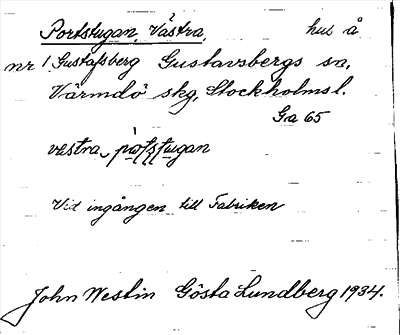 Portstugan, Västra, hus å
nr 1 Gustafsberg Gustavsbergs sn,
Värmdö skg, Stockholms l.
Ga 65
västra, pårtstugan
Vid ingången till Fabriken
John Westin Gösta Lundberg 1934.